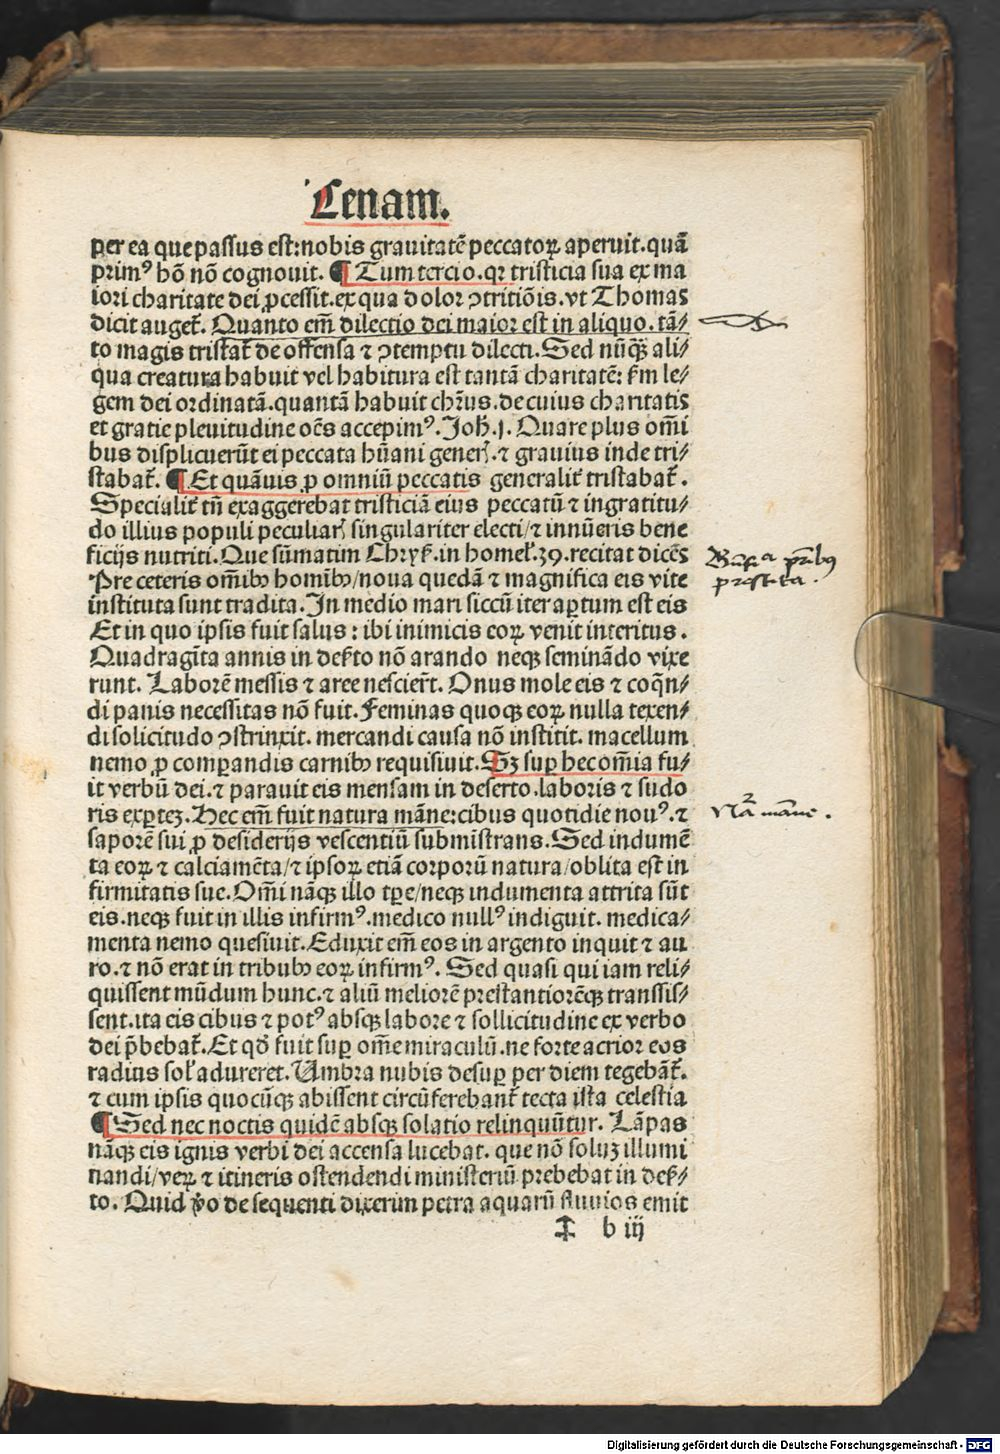 Cenam.
per ea que passus est: nobis grauitatē peccatoꝝ aperuit. quā
primꝰ hō nō cognouit. ¶ Tum tercio. qꝛ tristicia sua ex ma
iori charitate dei ꝓcessit. ex qua dolor ↄtritiōis. vt Thomas
dicit auget̄. Quanto em̄ dilectio dei maior est in aliquo. tā⸗
to magis tristat̄ de offensa ⁊ ↄtemptu dilecti. Sed nūꝗ̄ ali⸗
qua creatura habuit vel habitura est tantā charitatē: ẜm le⸗
gem dei ordinatā. quantā habuit chrūs. de cuius charitatis
et gratie plenitudine oēs accepimꝰ. Joh̄. j. Quare plus om̄i
bus displicuerūt ei peccata hūani gener̄. ⁊ grauius inde tri⸗
stabat̄. ¶ Et quāuis ꝓ omniū peccatis generalit̄ tristabat̄.
Specialit̄ tn̄ exaggerebat tristiciā eius peccatū ⁊ ingratitu⸗
do illius populi peculiar̄ singulariter electi/ ⁊ innūeris bene
ficijs nutriti. Que sūmatim Chryẜ. in homel̄. 39. recitat dicēs
Pre ceteris om̄ibꝰ homībꝰ/ noua quedā ⁊ magnifica eis vite
instituta sunt tradita. In medio mari siccū iter aꝑtum est eis
Et in quo ipsis fuit salus: ibi inimicis eoꝝ venit interitus.
Quadragīta annis in deẜto nō arando neqꝫ seminādo vixe
runt. Laborē messis ⁊ aree nescier̄t. Onus mole eis ⁊ coq̄n⸗
di panis necessitas nō fuit. Feminas quoqꝫ eoꝝ nulla texen⸗
di solicitudo ↄstrinxit. mercandi causa nō institit. macellum
nemo ꝓ comꝑandis carnibꝰ requisiuit. Sꝫ suꝑ hec om̄ia fu⸗
it verbū dei. ⁊ parauit eis mensam in deserto. laboris ⁊ sudo
ris exꝑtez. Hec em̄ fuit natura māne: cibus quotidie nouꝰ. ⁊
saporē sui ꝓ desiderijs vescentiū submistrans. Sed indumē
ta eoꝝ ⁊ calciamēta/ ⁊ ipsoꝝ etiā corporū natura/ oblita est in
firmitatis sue. Om̄i nāqꝫ illo tꝑe/ neqꝫ indumenta attrita sūt
eis. neqꝫ fuit in illis infirmꝰ. medico nullꝰ indiguit. medica⸗
menta nemo quesiuit. Eduxit em̄ eos in argento inquit ⁊ au
ro. ⁊ nō erat in tribubꝰ eoꝝ infirmꝰ. Sed quasi qui iam reli⸗
quissent mūdum hunc. ⁊ aliū meliorē prestantiorēqꝫ transsis⸗
sent. ita eis cibus ⁊ potꝰ absqꝫ labore ⁊ sollicitudine ex verbo
dei p̄bebat̄. Et qd̓ fuit suꝑ om̄e miraculū. ne forte acrior eos
radius sol̄ adureret. Umbra nubis desuꝑ per diem tegebāt̄.
⁊ cum ipsis quocūqꝫ abissent circūferebant̄ tecta ista celestia
¶ Sed nec noctis quidē absqꝫ solatio relinquūtur. Lāpas
nāqꝫ eis ignis verbi dei accensa lucebat. que nō soluꝫ illumi
nandi/ veꝝ ⁊ itineris ostendendi ministeriū prebebat in deẜ⸗
to. Quid ꝟo de sequenti dixerim petra aquarū fluuios emit
‡ b iij
Būfīa pr̄ibꝰ
prestita.
Nā māne.
Digitalisierung gefördert durch die Deutsche Forschungsgemeinschaft - DFG